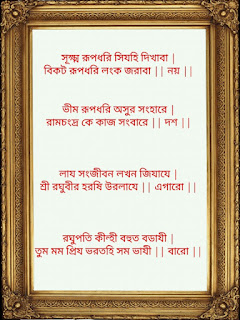 সূক্ষ্ম রূপধরি সিযহি দিখাবা |
বিকট রূপধরি লংক জরাবা || নয় ||
ভীম রূপধরি অসুর সংহারে |
রামচংদ্র কে কাজ সংবারে || দশ ||
লায সংজীবন লখন জিযাযে |
শ্রী রঘুবীর হরষি উরলাযে || এগারো ||
রঘুপতি কীন্হী বহুত বডাযী |
তুম মম প্রিয ভরতহি সম ভাযী || বারো ||